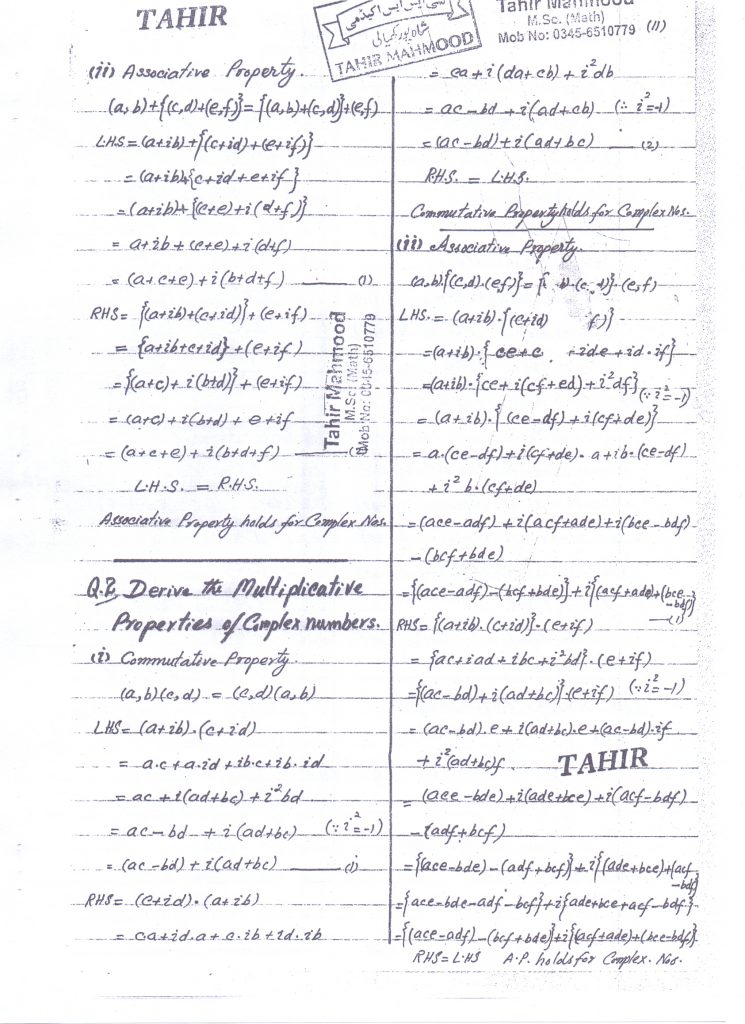 TAHIR
شاہ پور کھیالی
TAHIR MAHMOOD
Tahir Mahmood
M.Sc. (Math)
Mob No: 0345-6510779 (11)
(ii) Associative Property.
(a,b)+{(c,d)+(e,f)}={(a,b)+(c,d)}+(e,f)
LHS=(a+ib)+{(c+id)+(e+if)}
=(a+ib)+{c+id+e+if}
=(a+ib)+{(c+e)+i(d+f)}
= a+ib+(c+e)+i(d+f)
= (a+c+e)+i(b+d+f) (1)
RHS= {(a+ib)+(c+id)}+(e+if)
= {a+ib+c+id}+(e+if)
={(a+c)+i(b+d)}+(e+if)
=(a+c)+i(b+d)+e+if
=(a+c+e)+i(b+d+f)
L.H.S. = R.H.S.
Associative Property holds for Complex Nos.
Tahir Mahmood
M.Sc. (Math)
Mob No: 0345-6510779
Q.2, Derive the Multiplicative
Properties of Complex numbers.
(i) Commutative Property.
(a,b)(c,d) = (c,d)(a,b)
LHS= (a+ib).(c+id)
= a.c+a.id+ib.c+ib.id
= ac+i(ad+bc)+i²bd
= ac-bd +i(ad+bc) (∵i²=-1)
= (ac-bd)+i(ad+bc) (1)
RHS= (c+id).(a+ib)
= ca+id.a+c.ib+id.ib
= ca+i(da+cb)+i²db
= ac-bd +i(ad+cb) (∵i²=-1)
=(ac-bd)+i(ad+bc) (2)
R.H.S. = L.H.S.
Commutative Property holds for Complex Nos.
(ii) Associative Property.
(a,b){(c,d).(e,f)}= .(e,f)
LHS.= (a+ib).{(c+id) f)}
=(a+ib).{ce+c +ide+id.if}
=(a+ib).{ce+i(cf+ed)+i²df} (∵i²=-1)
=(a+ib).{(ce-df)+i(cf+de)}
=a.(ce-df)+i(cf+de).a+ib.(ce-df)
+i²b.(cf+de)
=(ace-adf)+i(acf+ade)+i(bce-bdf)
-(bcf+bde)
={(ace-adf)-(bcf+bde)}+i{(acf+ade)+(bce-bdf)} (1)
RHS={(a+ib).(c+id)}.(e+if)
={ac+iad+ibc+i²bd}.(e+if)
={(ac-bd)+i(ad+bc)}.(e+if) (∵i²=-1)
=(ac-bd).e+i(ad+bc).e+(ac-bd).if
+i²(ad+bc)f
TAHIR
=(ace-bde)+i(ade+bce)+i(acf-bdf)
-(adf+bcf)
={(ace-bde)-(adf+bcf)}+i{(ade+bce)+(acf-bdf)}
={ace-bde-adf-bcf}+i{ade+bce+acf-bdf}
={(ace-adf)-(bcf+bde)}+i{(acf+ade)+(bce-bdf)}
RHS=LHS A.P. holds for Complex. Nos.